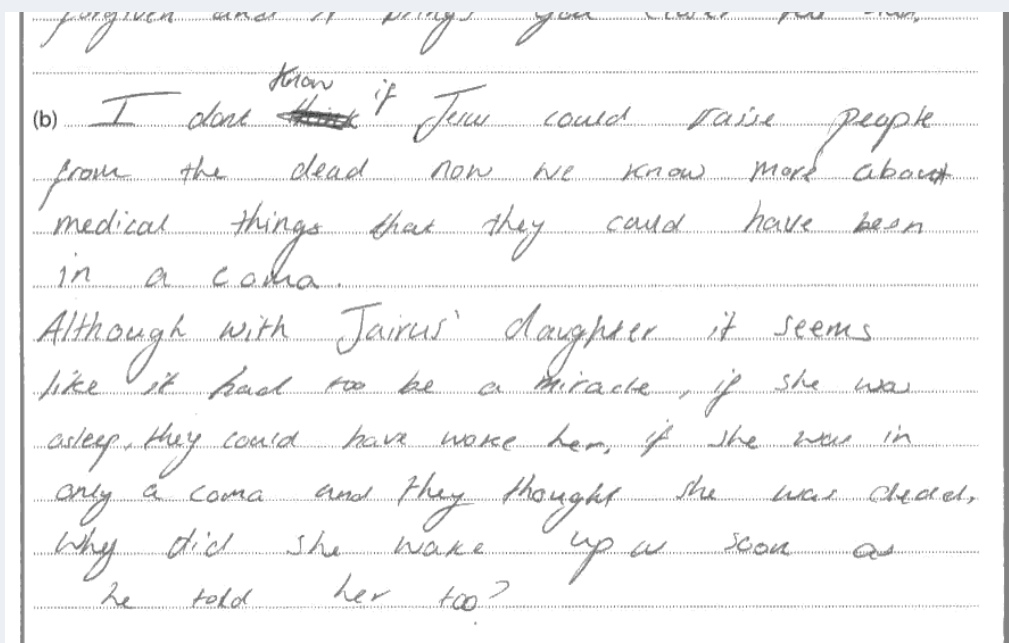 forgiven and it brings you closer
Know if
(b) I dont think Jesus could raise people
from the dead now we know more about
medical things that they could have been
in a coma.
Although with Jairus' daughter it seems
like it had too be a miracle, if she was
asleep, they could have wake her, if she was in
only a coma and they thought she was dead,
Why did she wake up as soon as
he told her too?